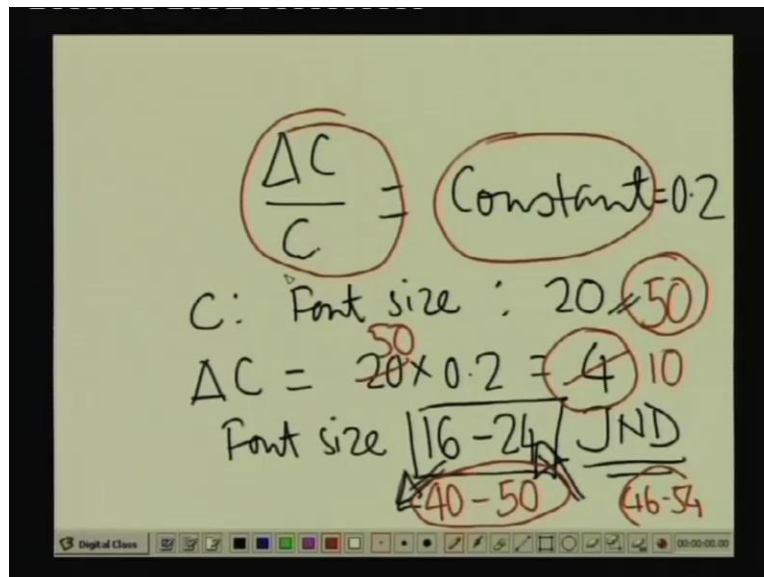 ΔC/C = Constant = 0.2
C: Font size : 20 50
50
ΔC = 20 × 0.2 = 4 10
Font size 16 - 24 JND
40 - 50 46-54
Digital Class 00:00:00.00